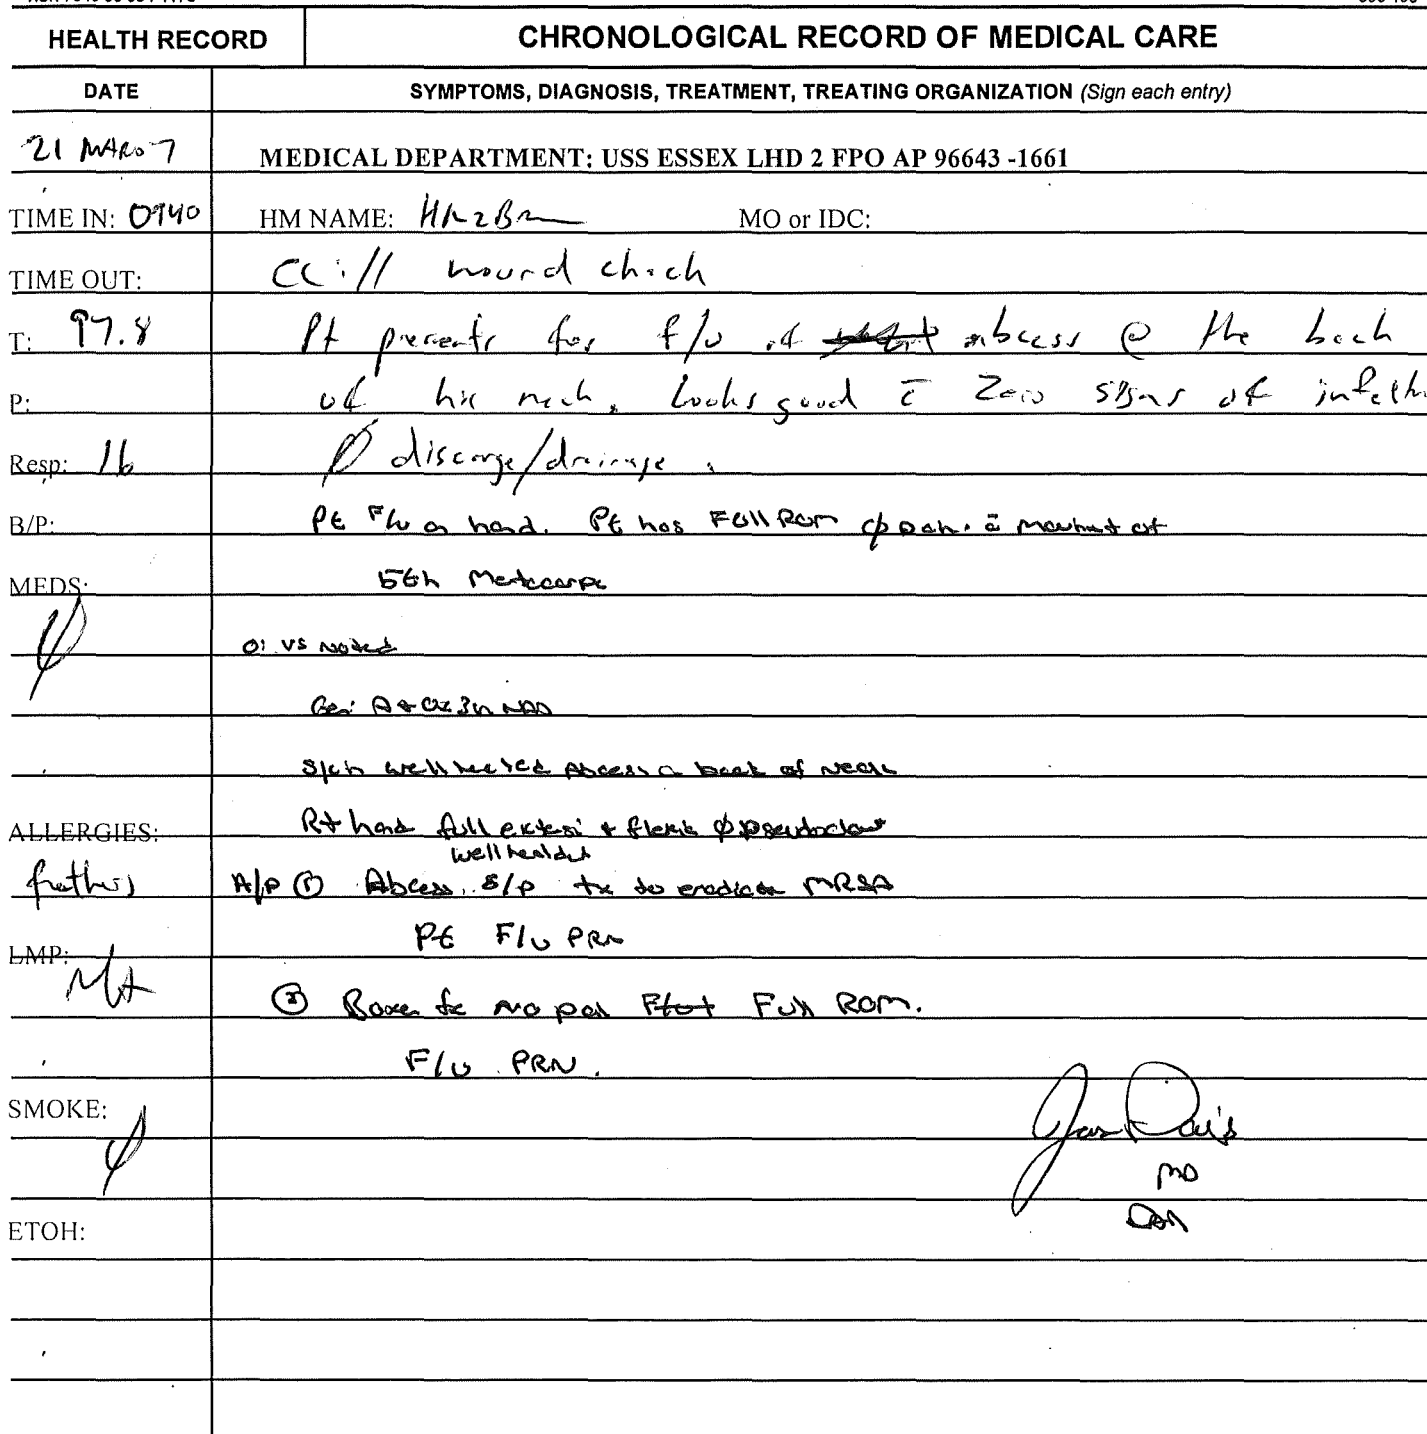 HEALTH RECORD
CHRONOLOGICAL RECORD OF MEDICAL CARE
DATE
SYMPTOMS, DIAGNOSIS, TREATMENT, TREATING ORGANIZATION (Sign each entry)
21 MAR07
MEDICAL DEPARTMENT: USS ESSEX LHD 2 FPO AP 96643 -1661
TIME IN: 0940
HM NAME: HM2
MO or IDC:
TIME OUT:
CC:// wound check
T: 97.8
Pt presents for f/u of abcess @ the back
P:
of his neck. Looks good c̄ Zero signs of
Resp: 16
Ø discarge/drainage.
B/P:
Pt F/u on hand. Pt has Full ROM Ø
MEDS:
5th
Ø
O: VS Noted
Gen: A+Ox3 NAD
well healed Abcess back of Neck
Rt hand full +
ALLERGIES:
well healed
A/P ① Abcess, S/p tx to eradicate MRSA
Pt F/u PRN
LMP:
N/A
② Boxer fx No pain Full ROM.
F/u PRN.
SMOKE:
Ø
MD
ETOH: